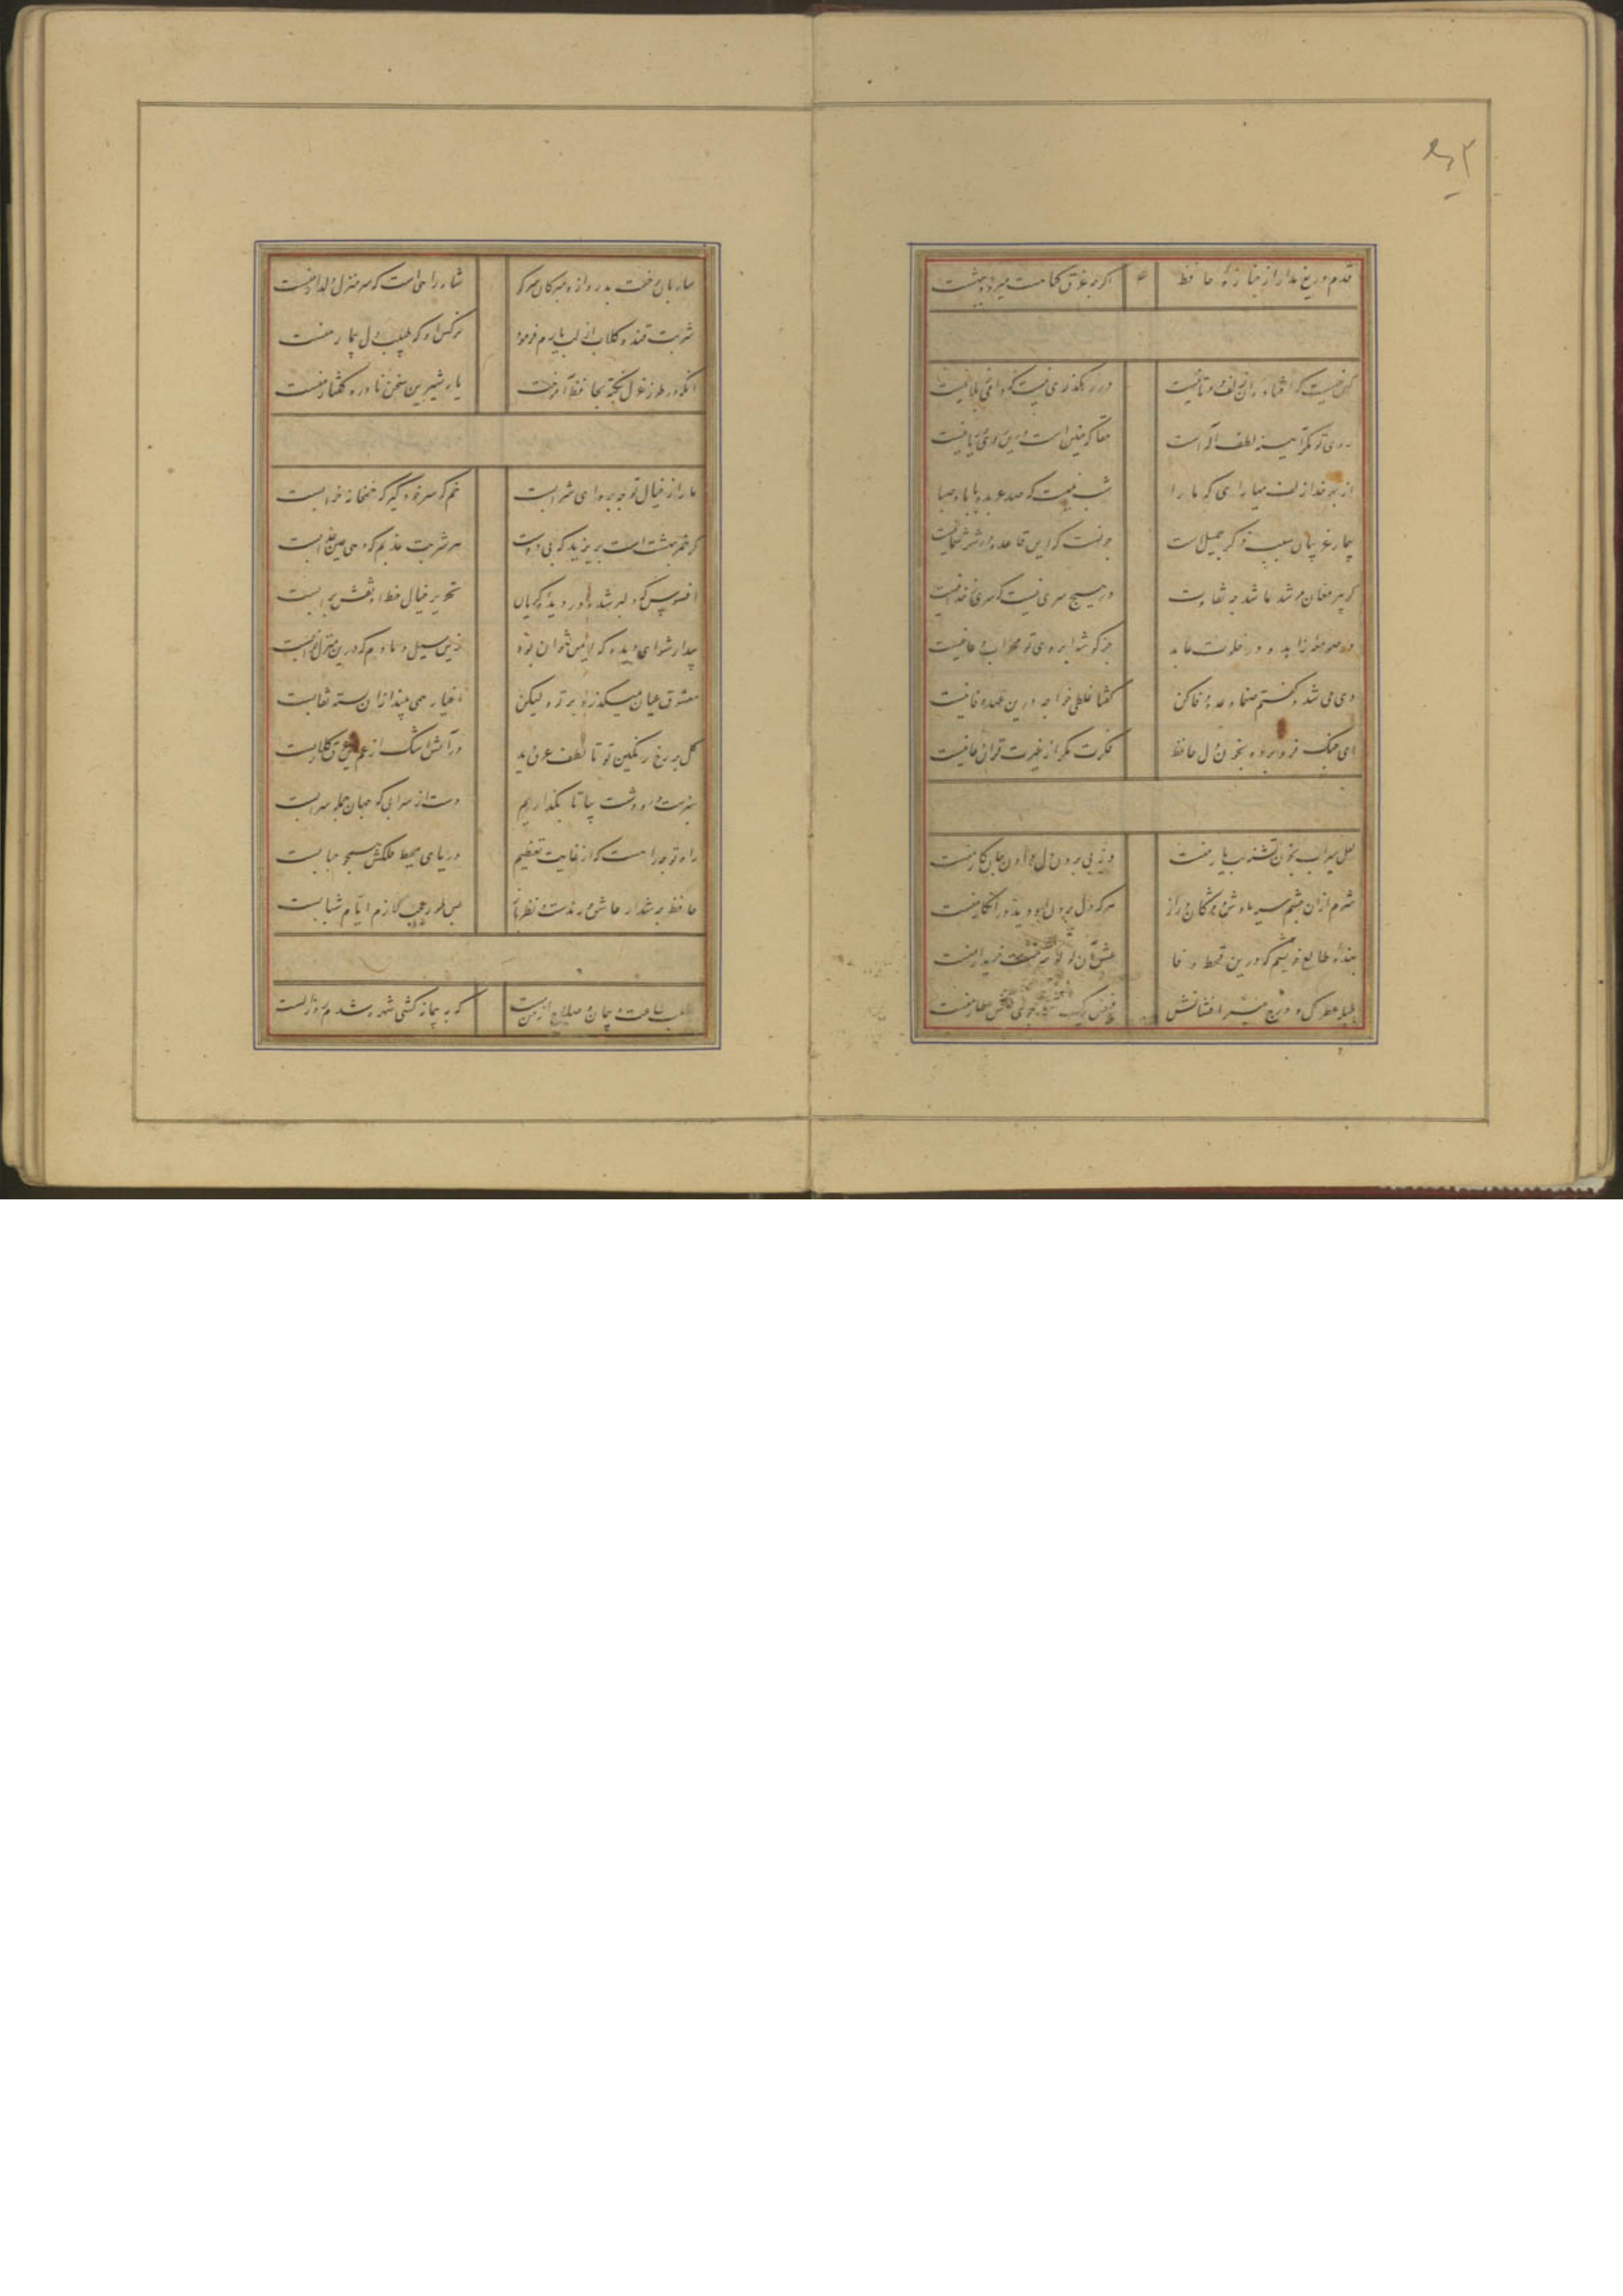 قدم دریغ مدار از جنازهٔ حافظ اگرچه غرق گناهست میرود ببهشت
کس نیست که افتاده آن زلف دوتا نیست در رهگذری نیست که دامی ز بلا نیست
روی تو مگر آینه لطف اله است حقا که چنین است و درین روی و ریا نیست
از بهر خدا زلف میارای که ما را شب نیست که صد عربده با باد صبا نیست
تیمار غریبان سبب ذکر جمیل است جانا مگر این قاعده در شهر شما نیست
گر پیر مغان مرشد ما شد چه تفاوت در هیچ سری نیست که سری ز خدا نیست
در صومعه زاهد و در خلوت عابد جز گوشه ابروی تو محراب دعا نیست
دی می شد و گفتم صنما وعده وفا کن گفتا غلطی خواجه درین عهد وفا نیست
ای چنگ فرو برده بخون دل حافظ فکرت مگر از غیرت قرآن خدا نیست
لعل سیراب بخون تشنه لب یار منست وز پی دیدن او دادن جان کار منست
شرم از آن چشم سیه بادش و مژگان دراز هر که دل بردن او دید و در انکار منست
بنده طالع خویشم که درین قحط وفا عشق آن لولی سرمست خریدار منست
طبله عطر گل و درج عبیر افشانش فیض یک شمه ز بوی خوش عطار منست
ساربان رخت بدروازه مبر کان سر کو شاه راهی است که سر منزل دلدار منست
شربت قند و گلاب از لب یارم فرمود نرگس او که طبیب دل بیمار منست
آنکه در طرز غزل نکته بحافظ آموخت یار شیرین سخن نادره گفتار منست
ما را ز خیال تو چه پروای شرابست خم گو سر خود گیر که خمخانه خرابست
گر خمر بهشت است بریزید که بی دوست هر شربت عذبم که دهی عین عذابست
افسوس که دلبر شد و در دیده گریان تحریر خیال خط او نقش بر آبست
بیدار شو ای دیده که ایمن نتوان بود زین سیل دمادم که درین منزل خوابست
معشوق عیان میگذرد بر تو و لیکن اغیار همی بیند از آن بسته نقابست
گل بر رخ رنگین تو تا لطف عرق دید در آتش اشک از غم دل غرق گلابست
سبزست در و دشت بیا تا نگذاریم دست از سر آبی که جهان جمله سرابست
راه تو چه راهست که از غایت تعظیم دریای محیط فلکش همچو حبابست
حافظ چه شد ار عاشق و رندست و نظرباز بس طور عجب لازم ایام شبابست
مطلب طاعت و پیمان و صلاح از من مست که به پیمانه کشی شهره شدم روز الست